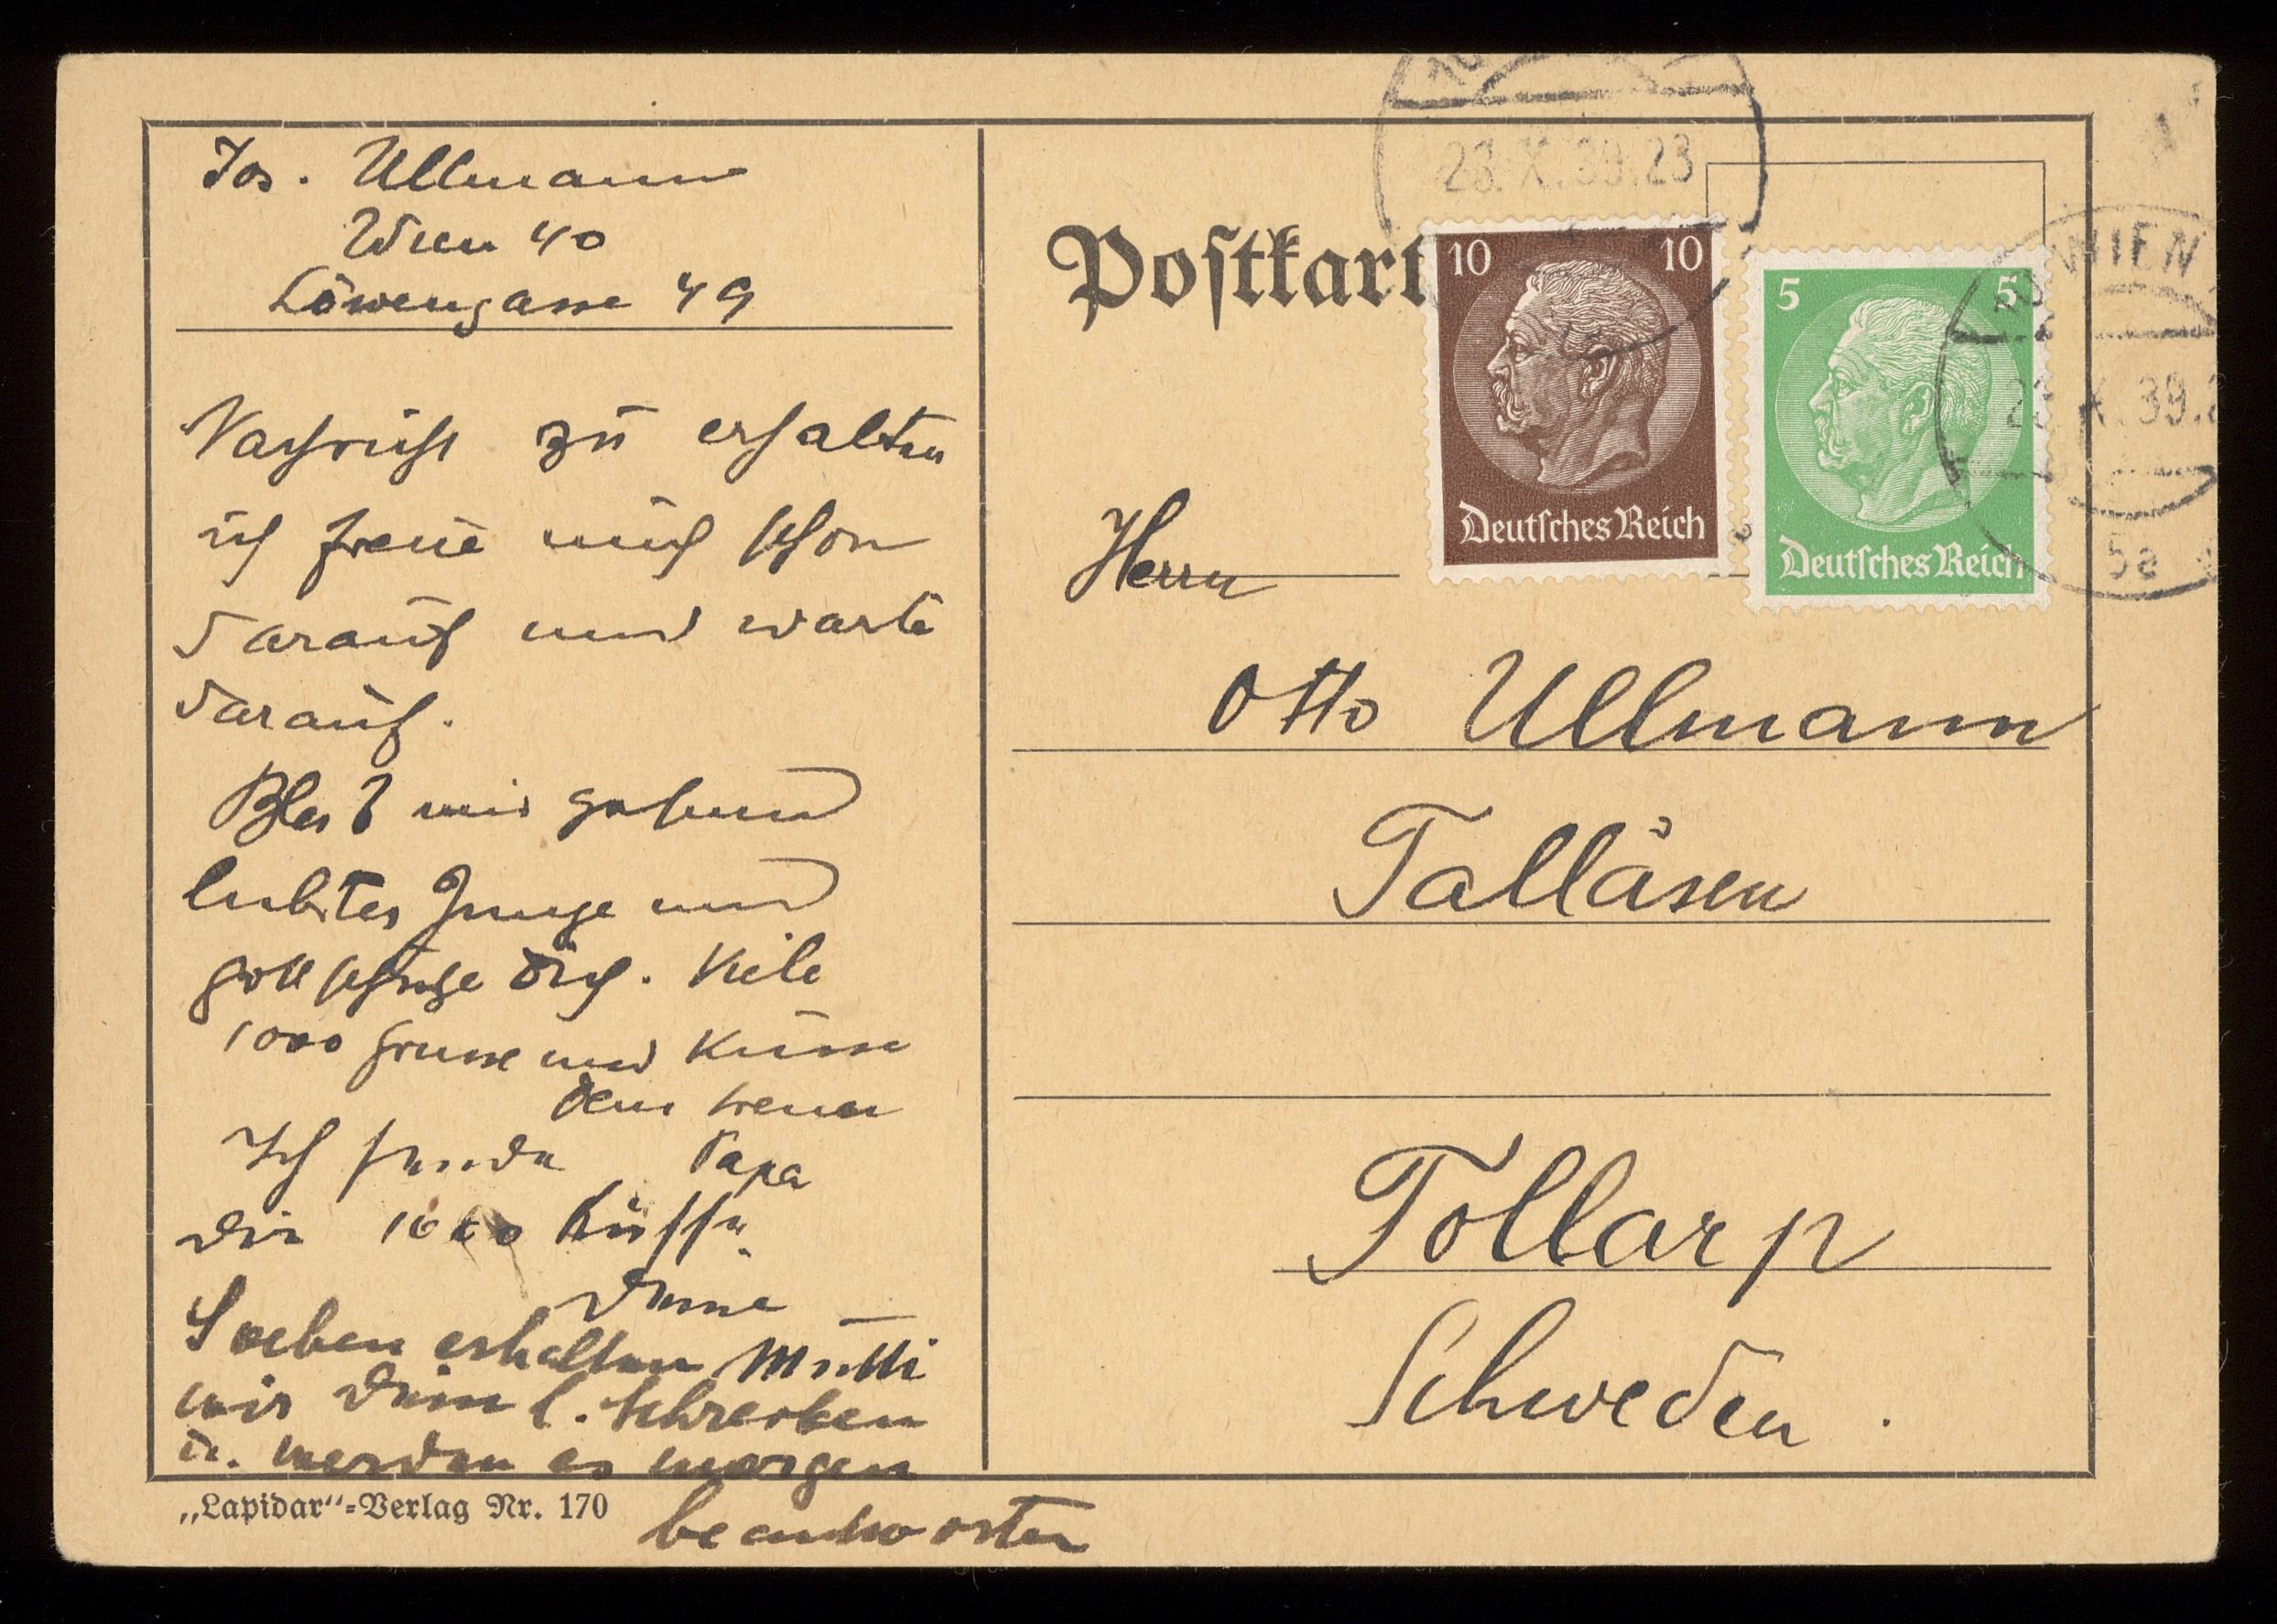 Jos. Ullmann
Wien 40
Löwengasse 49
Nachricht zu erhalten
ich freue mich schon
darauf und warte
darauf.
Bleib mir gesund
liebstes Junge und
gott schütze dich. Viele
1000 Grüsse und Küsse
dein treuer
Papa
Ich sende
dir 1000 Küsse
Deine
Mutti
Soeben erhalten
wir Dein l. Schreiben
u. werden es morgen
beantworten
„Lapidar“-Verlag Nr. 170
Postkart
23.X.39.23
10 10
Deutsches Reich
5 5
Deutsches Reich
WIEN
X.39.
Herrn
Otto Ullmann
Tallåsen
Tollarp
Schweden.